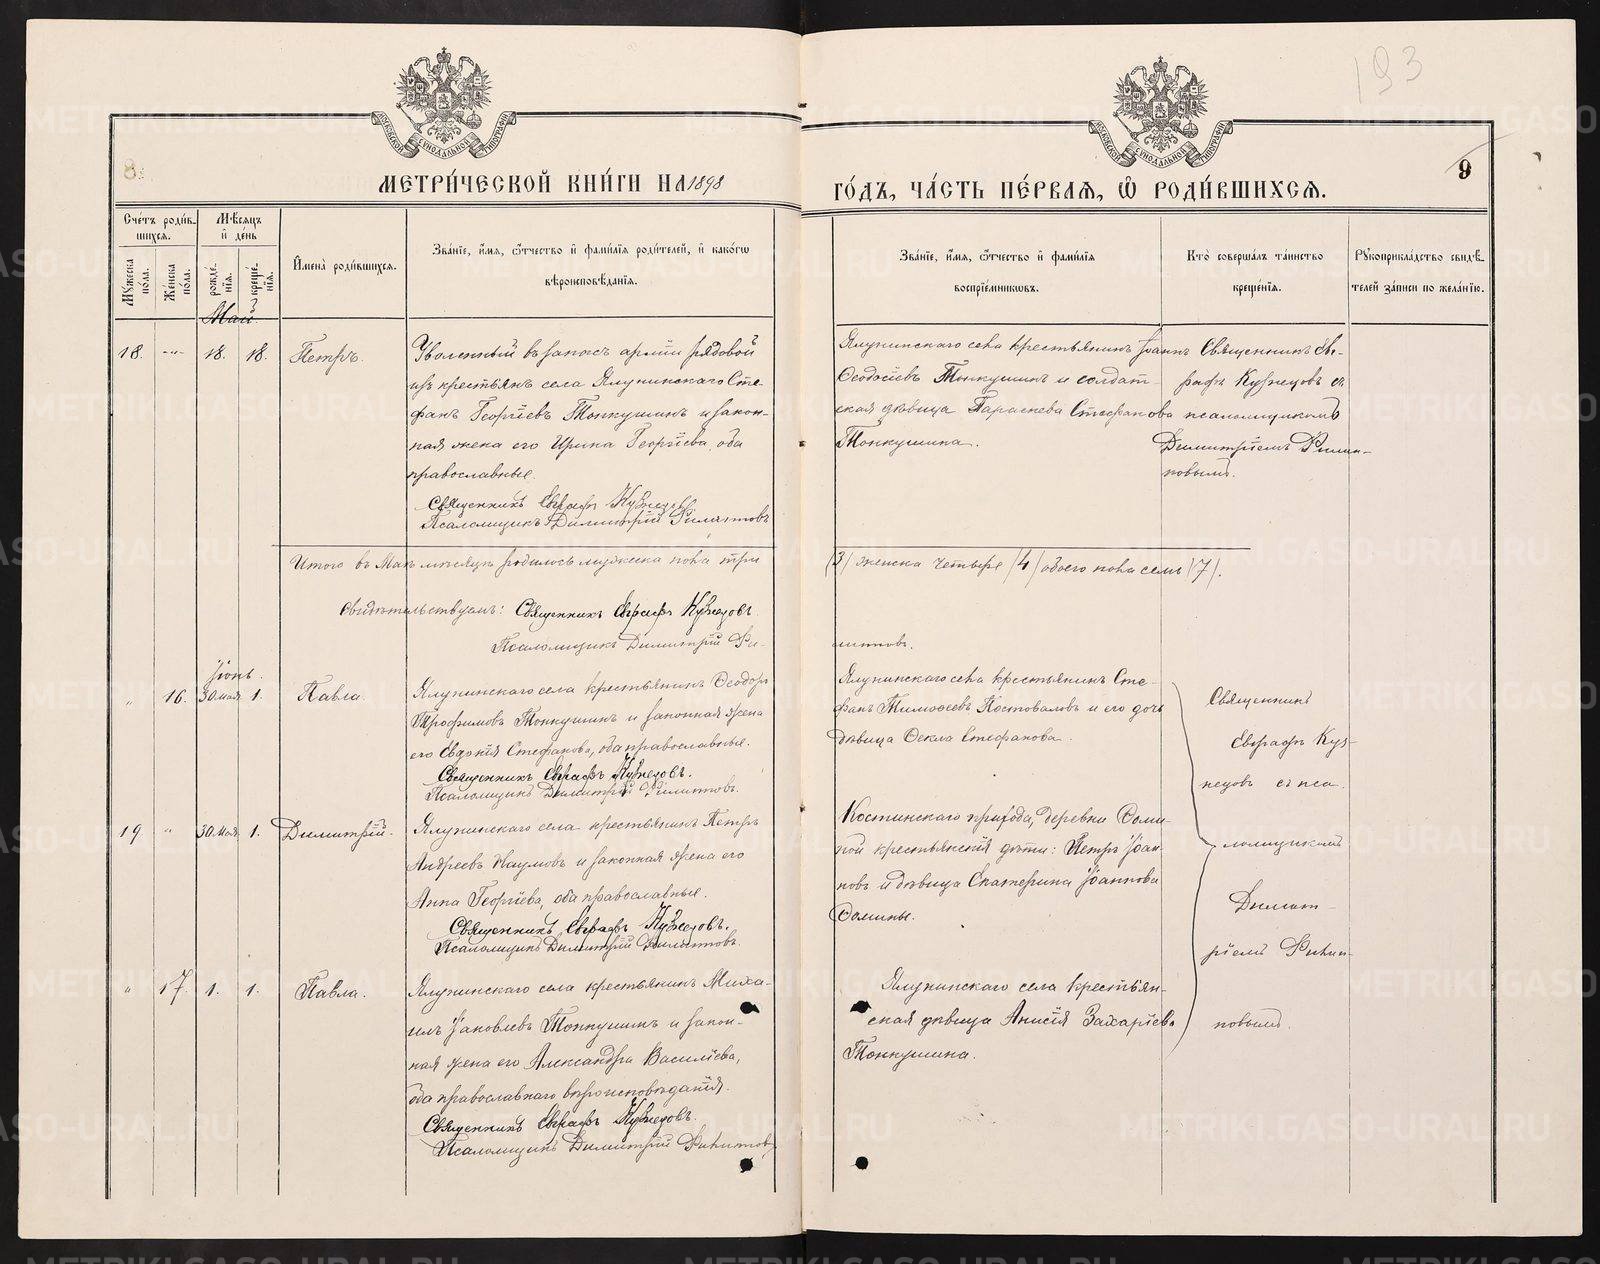 193
8.
9
МЕТРИ́ЧЕСКОЙ КНИ́ГИ НА 1898
ГО́ДЪ, ЧА́СТЬ ПЕ́РВАѦ, Ѽ РОДИ́ВШИХСѦ.
Сче́тъ роди́в-
шихсѧ.
Мꙋ́жеска по́ла.
Же́нска по́ла.
Мѣ́сѧцъ и҆ де́нь
рожде́-
нїѧ.
креще́-
нїѧ.
И҆мена̀ роди́вшихсѧ.
Зва́нїе, и҆́мѧ, ѻ҆́тчество и҆ фами́лїѧ роди́телей, и҆ како́гѡ
вѣроисповѣ́данїѧ.
Зва́нїе, и҆́мѧ, ѻ҆́тчество и҆ фами́лїѧ
воспрїе́мникѡвъ.
Кто̀ соверша́лъ та́инство
креще́нїѧ.
Рꙋкоприкла́дство свидѣ́-
телей за́писи по жела́нїю.
Май
18. -"- 18. 18. Петръ.
Уволенный въ запасъ армiи рядовой
изъ крестьянъ села Ялунинскаго Сте-
фанъ Георгiевъ Тонкушинъ и закон-
ная жена его Ирина Георгiева, оба
православные.
Священникъ Евграфъ Кузнецовъ
Псаломщикъ Димитрiй Филипповъ
Ялунинскаго села крестьянинъ Iоаннъ
Ѳеодосiевъ Тонкушинъ и солдат-
ская дѣвица Параскева Стефанова
Тонкушина.
Священникъ Ев-
графъ Кузнецовъ съ
псаломщикомъ
Димитрiемъ Филип-
повымъ.
Итого въ Маѣ мѣсяцѣ родилось мужеска пола три
/3/ женска четыре /4/ обоего пола семь /7/.
Свидѣтельствуемъ: Священникъ Евграфъ Кузнецовъ
Псаломщикъ Димитрiй Фи-
липповъ.
Iюнь.
" 16. 30 мая 1. Павла.
Ялунинскаго села крестьянинъ Ѳеодоръ
Трофимовъ Тонкушинъ и законная жена
его Евдокiя Стефанова, оба православные.
Священникъ Евграфъ Кузнецовъ.
Псаломщикъ Димитрiй Филипповъ.
Ялунинскаго села крестьянинъ Сте-
фанъ Тимоѳеевъ Костоваловъ и его дочь
дѣвица Ѳекла Стефанова.
Священникъ
Евграфъ Куз-
нецовъ съ пса-
ломщикомъ
Димит-
рiемъ Филип-
повымъ.
19 " 30 мая 1. Димитрiй.
Ялунинскаго села крестьянинъ Петръ
Андреевъ Наумовъ и законная жена его
Анна Георгiева, оба православные.
Священникъ Евграфъ Кузнецовъ.
Псаломщикъ Димитрiй Филипповъ.
Костинскаго прихода, деревни Ѳоми-
ной крестьянскiя дѣти: Петръ Iоан-
новъ и дѣвица Екатерина Iоаннова
Ѳомины.
" 17. 1. 1. Павла.
Ялунинскаго села крестьянинъ Миха-
илъ Iаковлевъ Тонкушинъ и закон-
ная жена его Александра Василiева,
оба православнаго вѣроисповѣданiя.
Священникъ Евграфъ Кузнецовъ.
Псаломщикъ Димитрiй Филипповъ
Ялунинскаго села крестьян-
ская дѣвица Анисiя Захарiева
Тонкушина.
METRIKI.GASO-URAL.RU